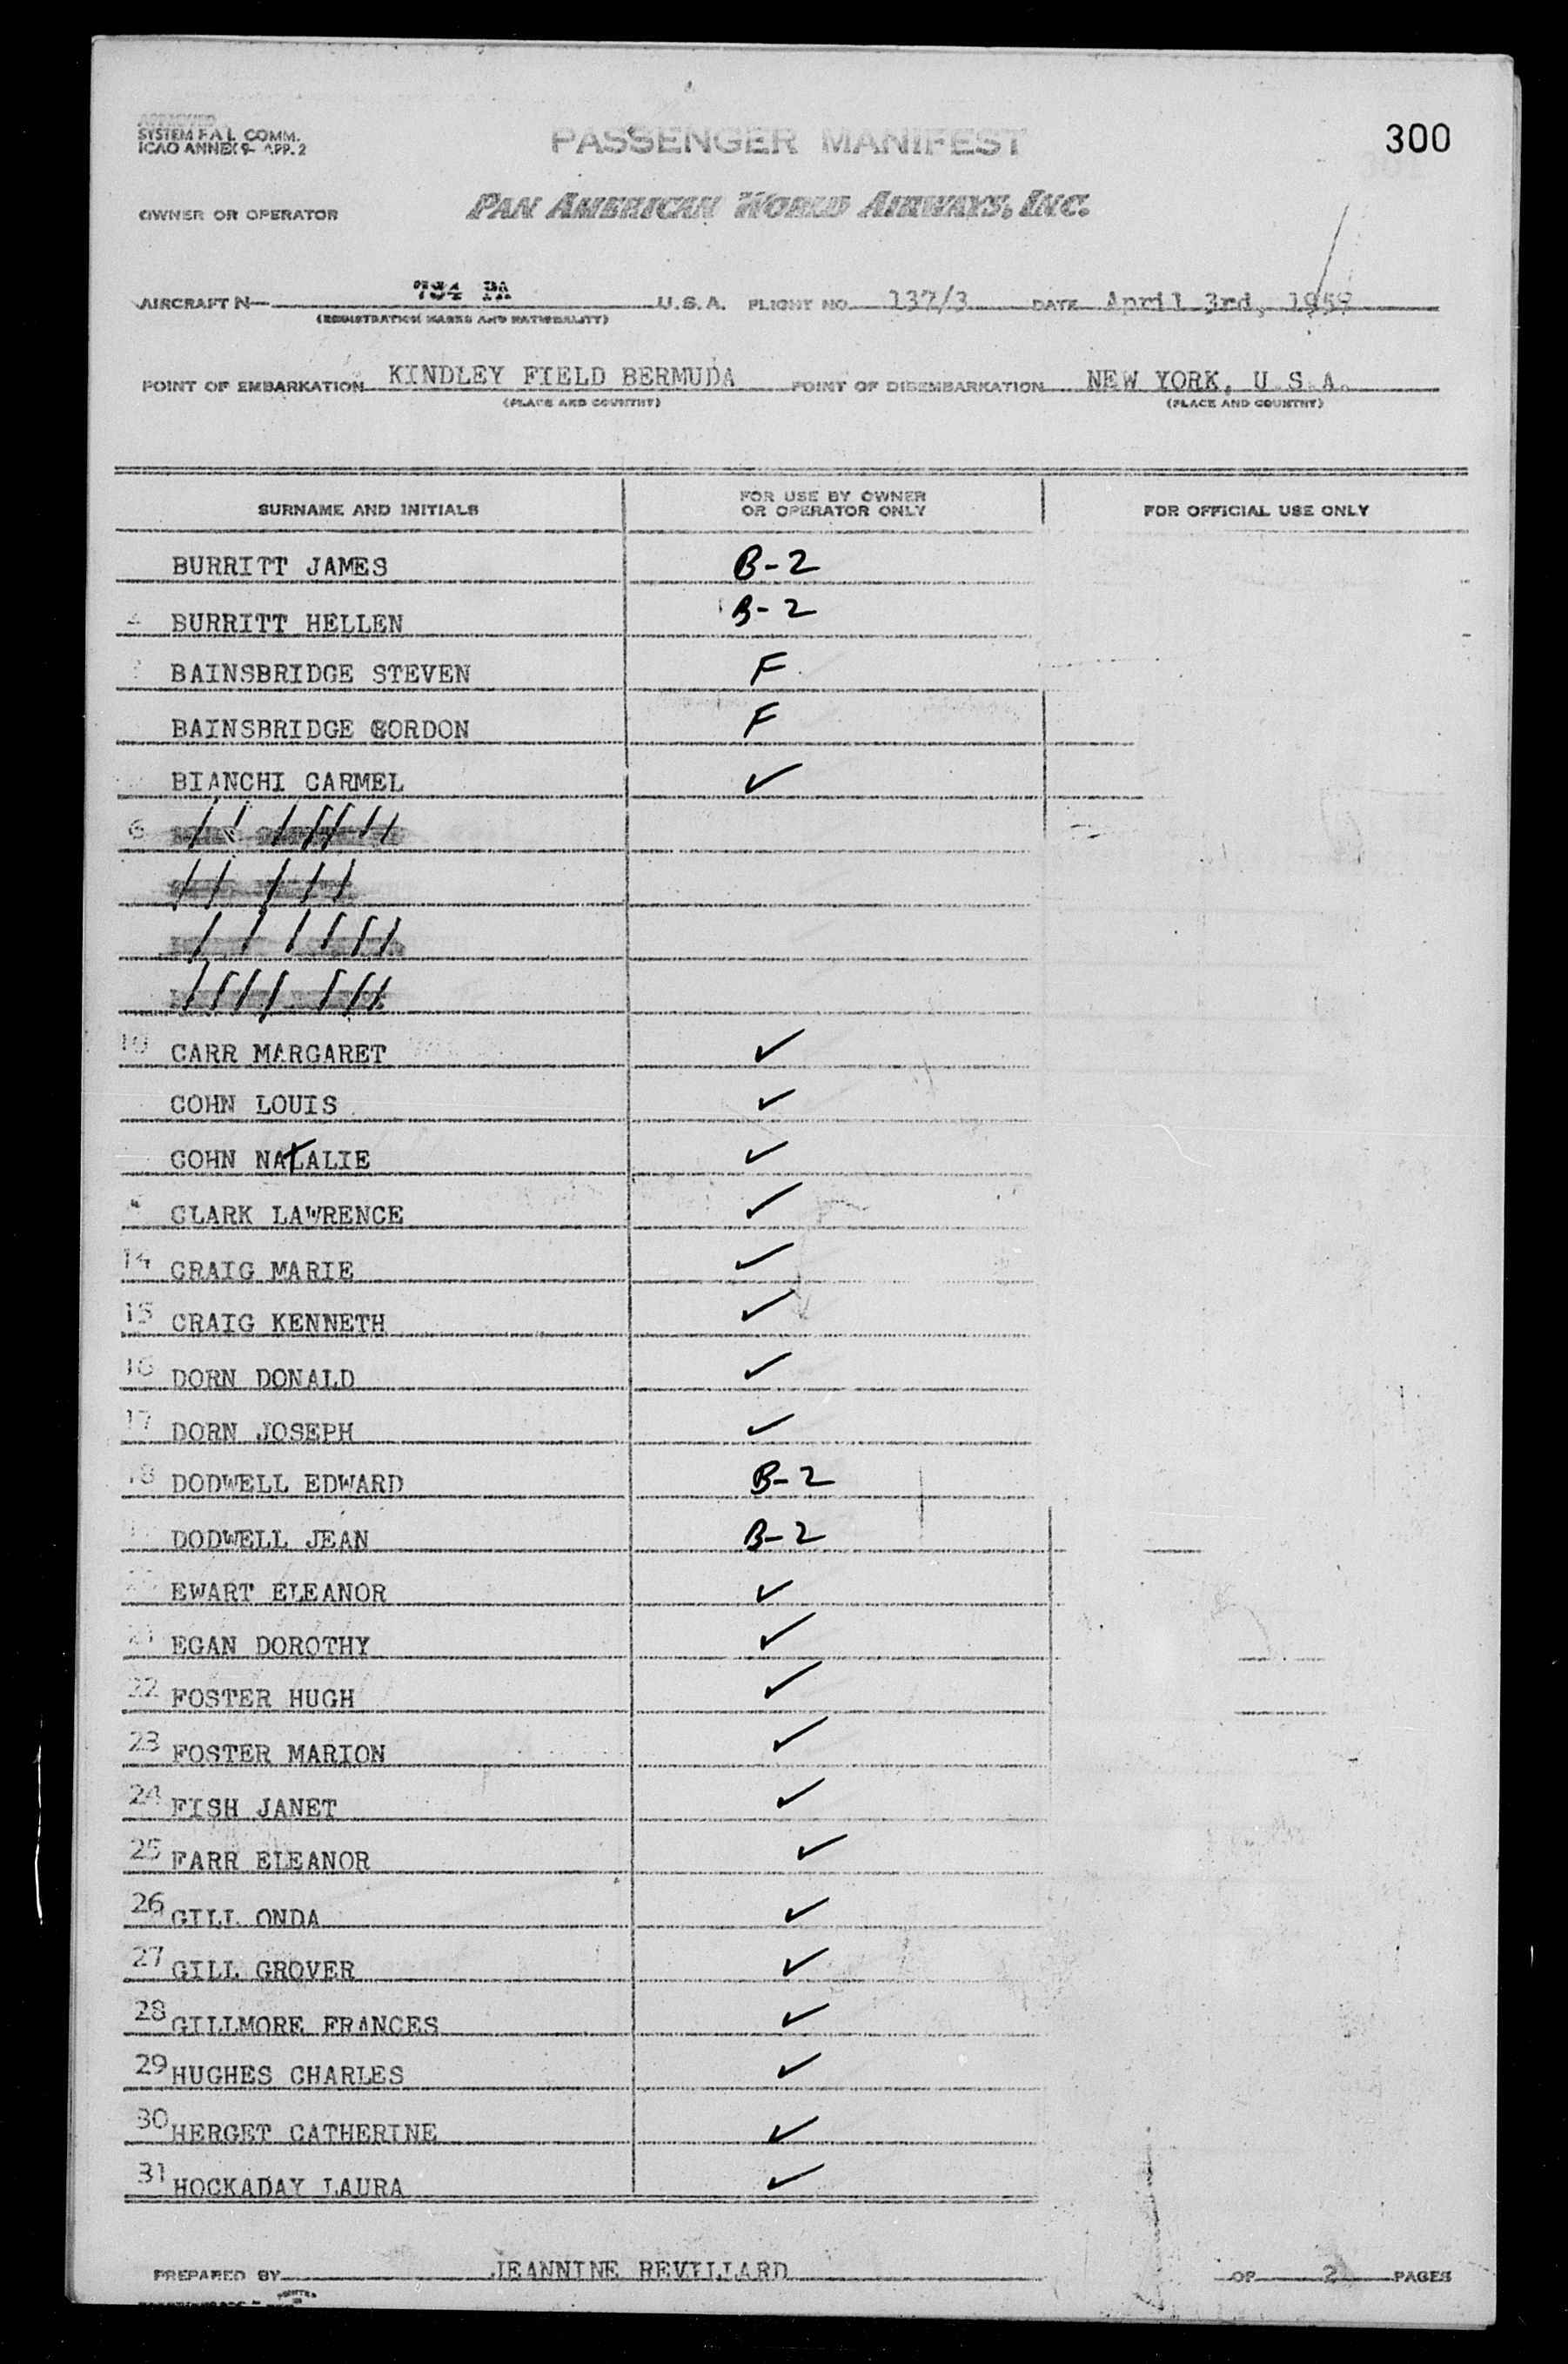 APPROVED
SYSTEM F.A L COMM.
ICAO ANNEX 9- APP. 2
PASSENGER MANIFEST
300
OWNER OR OPERATOR
PAN AMERICAN WORLD AIRWAYS, INC.
AIRCRAFT N— 784 PA U.S.A. FLIGHT NO. 137/3 DATE April 3rd, 1959
(REGISTRATION MARKS AND NATIONALITY)
POINT OF EMBARKATION KINDLEY FIELD BERMUDA POINT OF DISEMBARKATION NEW YORK, U S A.
(PLACE AND COUNTRY) (PLACE AND COUNTRY)
SURNAME AND INITIALS
FOR USE BY OWNER
OR OPERATOR ONLY
FOR OFFICIAL USE ONLY
BURRITT JAMES B-2
2 BURRITT HELLEN B-2
BAINSBRIDGE STEVEN F
BAINSBRIDGE GORDON F
BIANCHI CARMEL ✓
6
10 CARR MARGARET ✓
COHN LOUIS ✓
COHN NATALIE ✓
CLARK LAWRENCE ✓
14 CRAIG MARIE ✓
15 CRAIG KENNETH ✓
16 DORN DONALD ✓
17 DORN JOSEPH ✓
18 DODWELL EDWARD B-2
DODWELL JEAN B-2
20 EWART ELEANOR ✓
21 EGAN DOROTHY ✓
22 FOSTER HUGH ✓
23 FOSTER MARION ✓
24 FISH JANET ✓
25 FARR ELEANOR ✓
26 GILL ONDA ✓
27 GILL GROVER ✓
28 GILLMORE FRANCES ✓
29 HUGHES CHARLES ✓
30 HERGET CATHERINE ✓
31 HOCKADAY LAURA ✓
PREPARED BY JEANNINE REVILLARD OF 2 PAGES